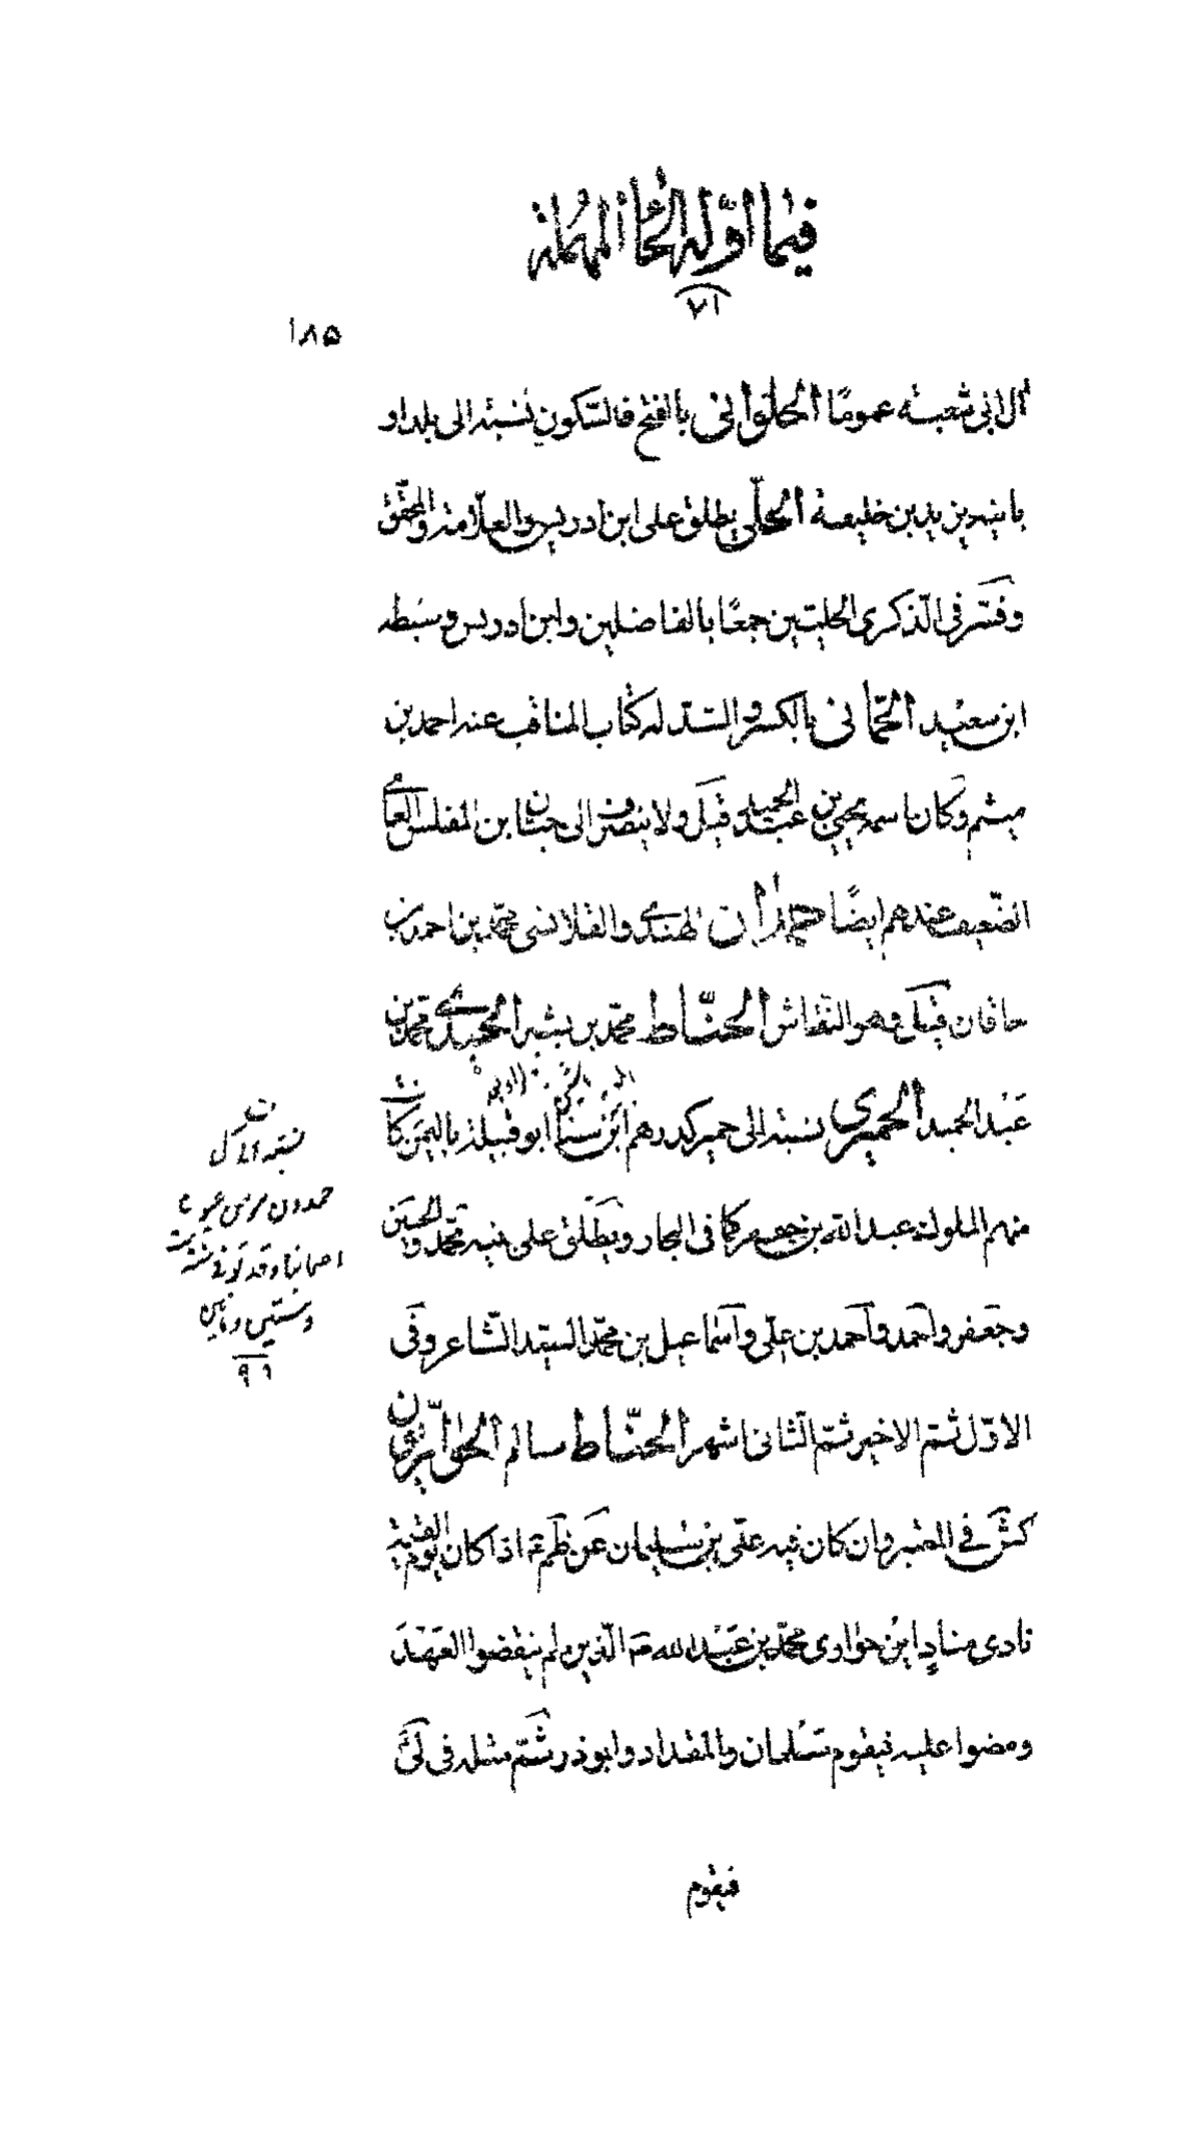 فيما اوّله الحاء المهملة
٧١
١٨۵
آل ابى شعبه عمومًا الحلوانى بالفتح فالسّكون نسبة الى بلد او
يزيد بن خليفة الحلّى يطلق على ابن ادريس والعلّامة والمحقّق
وفسّر فى الذّكرى الحليّين جمعًا بالفاضلين وابن ادريس وسبطه
ابن سعيد الحمّانى بالكسر والشد له كتاب المناقب عنه احمد بن
ميثم وكان اسمه يحيى بن عبد الحميد قبل ولا ينصرف الى جبان بن المفلس العامى
الضّعيف عندهم ايضًا حمدان النهدى والقلانسى محمّد بن احمد بن
خاقان قيل وهو النقّاش الحنّاط محمّد بن بشير الحميدى محمّد بن
عبد الحميد الحميرى نسبة الى حمير كدرهم ابن سبا ابو قبيلة باليمن كانت
منهم الملوك عبد الله بن جعفر كما فى البحار ويطلق على بنيه محمّد والحسين
وجعفر واحمد واحمد بن على واسماعيل بن محمّد السيّد الشّاعر وفى
الاوّل ثمّ الاخير ثمّ الثانى اشهر الحنّاط سالم الحواريّون
كش فى المعتبر وان كان فيه على بن سليمان عن ظم ع اذا كان يوم القيمة
نادى مناد اين حوارى محمّد بن عبد الله ص الّذين لم ينقضوا العهد
ومضوا عليه فيقوم سلمان والمقداد وابوذر ثمّ مثله فى
فيقوم
نسبة الى
حمدون
وقد توفى سنة
وستين
٩٦